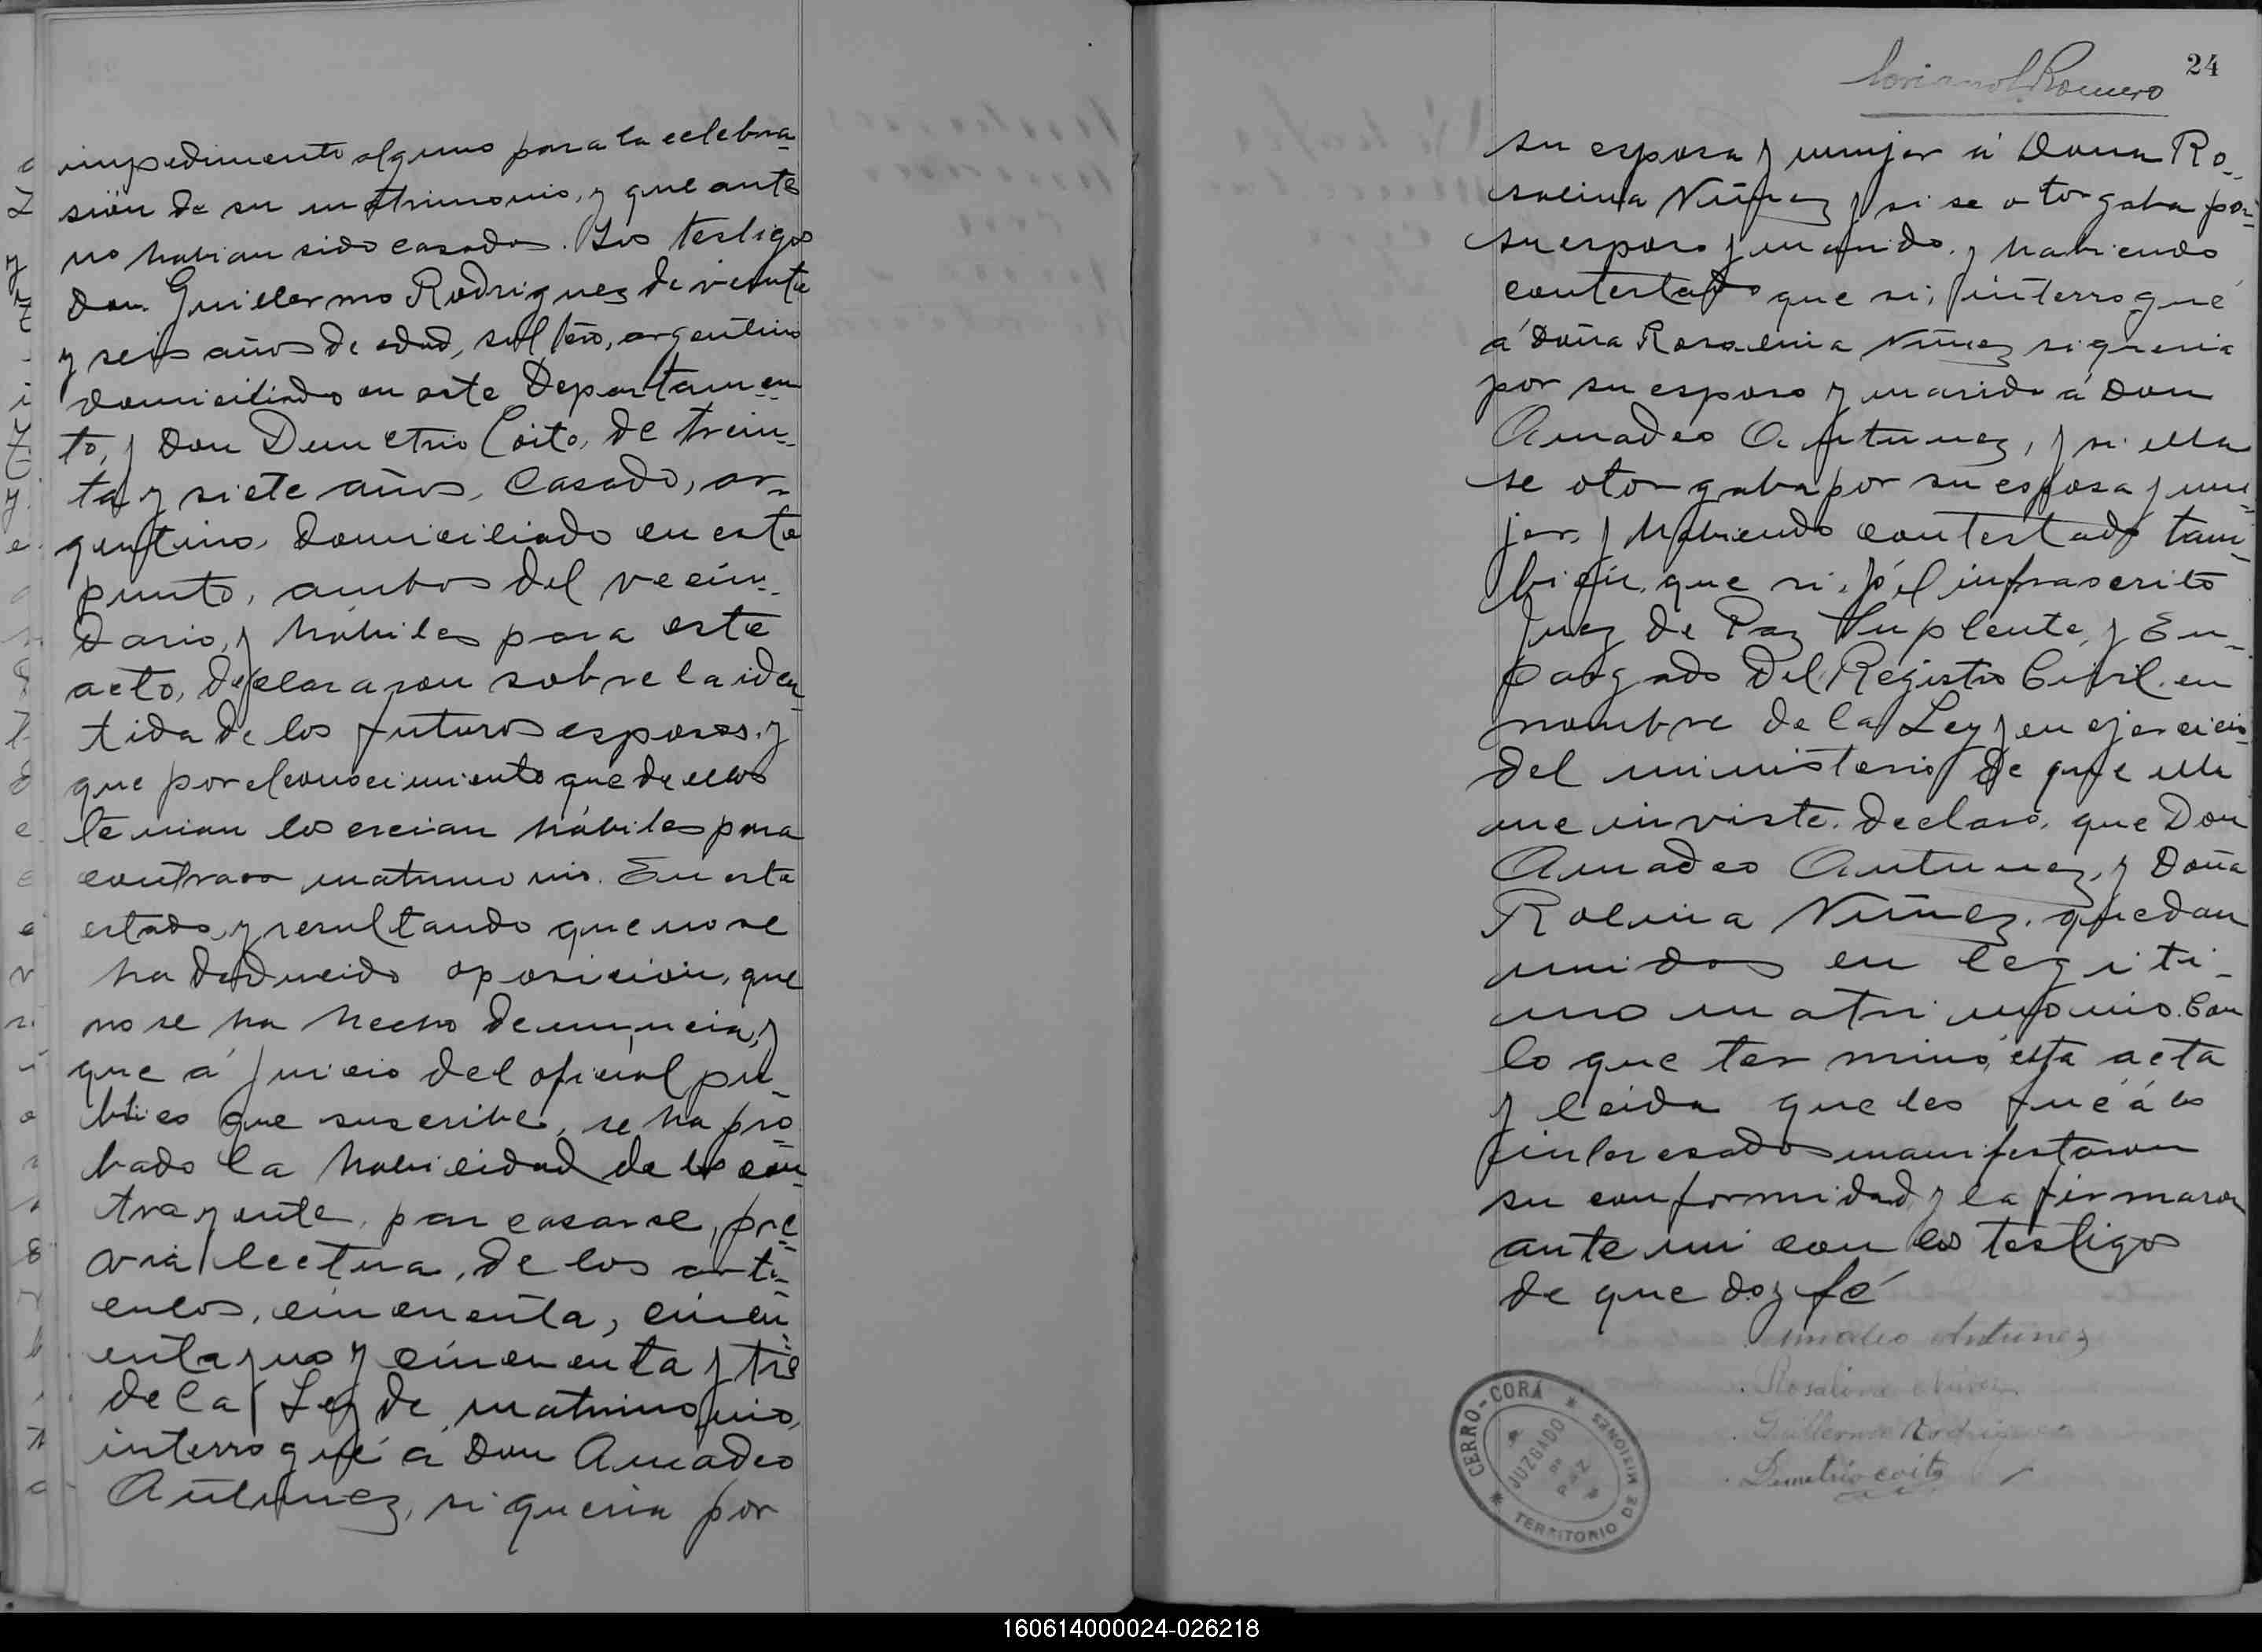 impedimento alguno para la celebra-
sión de su matrimonio, y que antes
no habian sido casados. Los testigos
Don Guillermo Rodriguez de veinte
y seis años de edad, soltero, argentino
domiciliado en este Departamen-
to, y Don Demetrio Coito, de trein-
ta y siete años, casado, ar-
gentino, domiciliado en este
punto, ambos del vecin-
dario, y hábiles para este
acto, declararon sobre la iden-
tida de los futuros esposos, y
que por el conocimiento que de ellos
tenian los creian hábiles para
contraer matrimonio. En este
estado, y resultando que no se
ha deducido oposicion, que
no se ha hecho denuncia, y
que á juicio del oficial pu-
blico que suscribe, se ha pro-
bado la habilidad de los con-
trayente, par casarse, pre-
via lectura, de los arti-
culos, cincuenta, cincu-
enta y uno y cincuenta y tre
de la Ley de matrimonio,
interrogué á Don Amadeo
Antunez, si queria por
24
Romero
su esposa y mujer á Dona Ro-
salina Nuñez y si se otorgaba por
su esposo y marido, y habiendo
contestado que si; interrogué
á Doña Rosalina Nuñez si queria
por su esposo y marido á Don
Amadeo Antunez, y si ella
se otorgaba por su esposa y mu-
jer, y habiendo contestado tam-
bién, que si, yó el infrascrito
Juez de Paz Suplente, y En-
cargado del Registro Civil, en
nombre de la Ley y en ejercicio
del ministerio de que ella
me inviste, declaró, que Don
Amadeo Antunez, y Doña
Rolina Nuñez, quedan
unidos en legiti-
mo matrimonio. Con
lo que terminó, esta acta
y leida que les fué á los
interesados manifestaron
su conformidad, y la firmaron
ante mi con los testigos
de que doy fé
Amadeo Antunez
Rosalina Nuñez
Guillermo Rodriguez
Demetrio Coito
CERRO-CORÁ
JUZGADO DE PAZ
TERRITORIO DE MISIONES
160614000024-026218